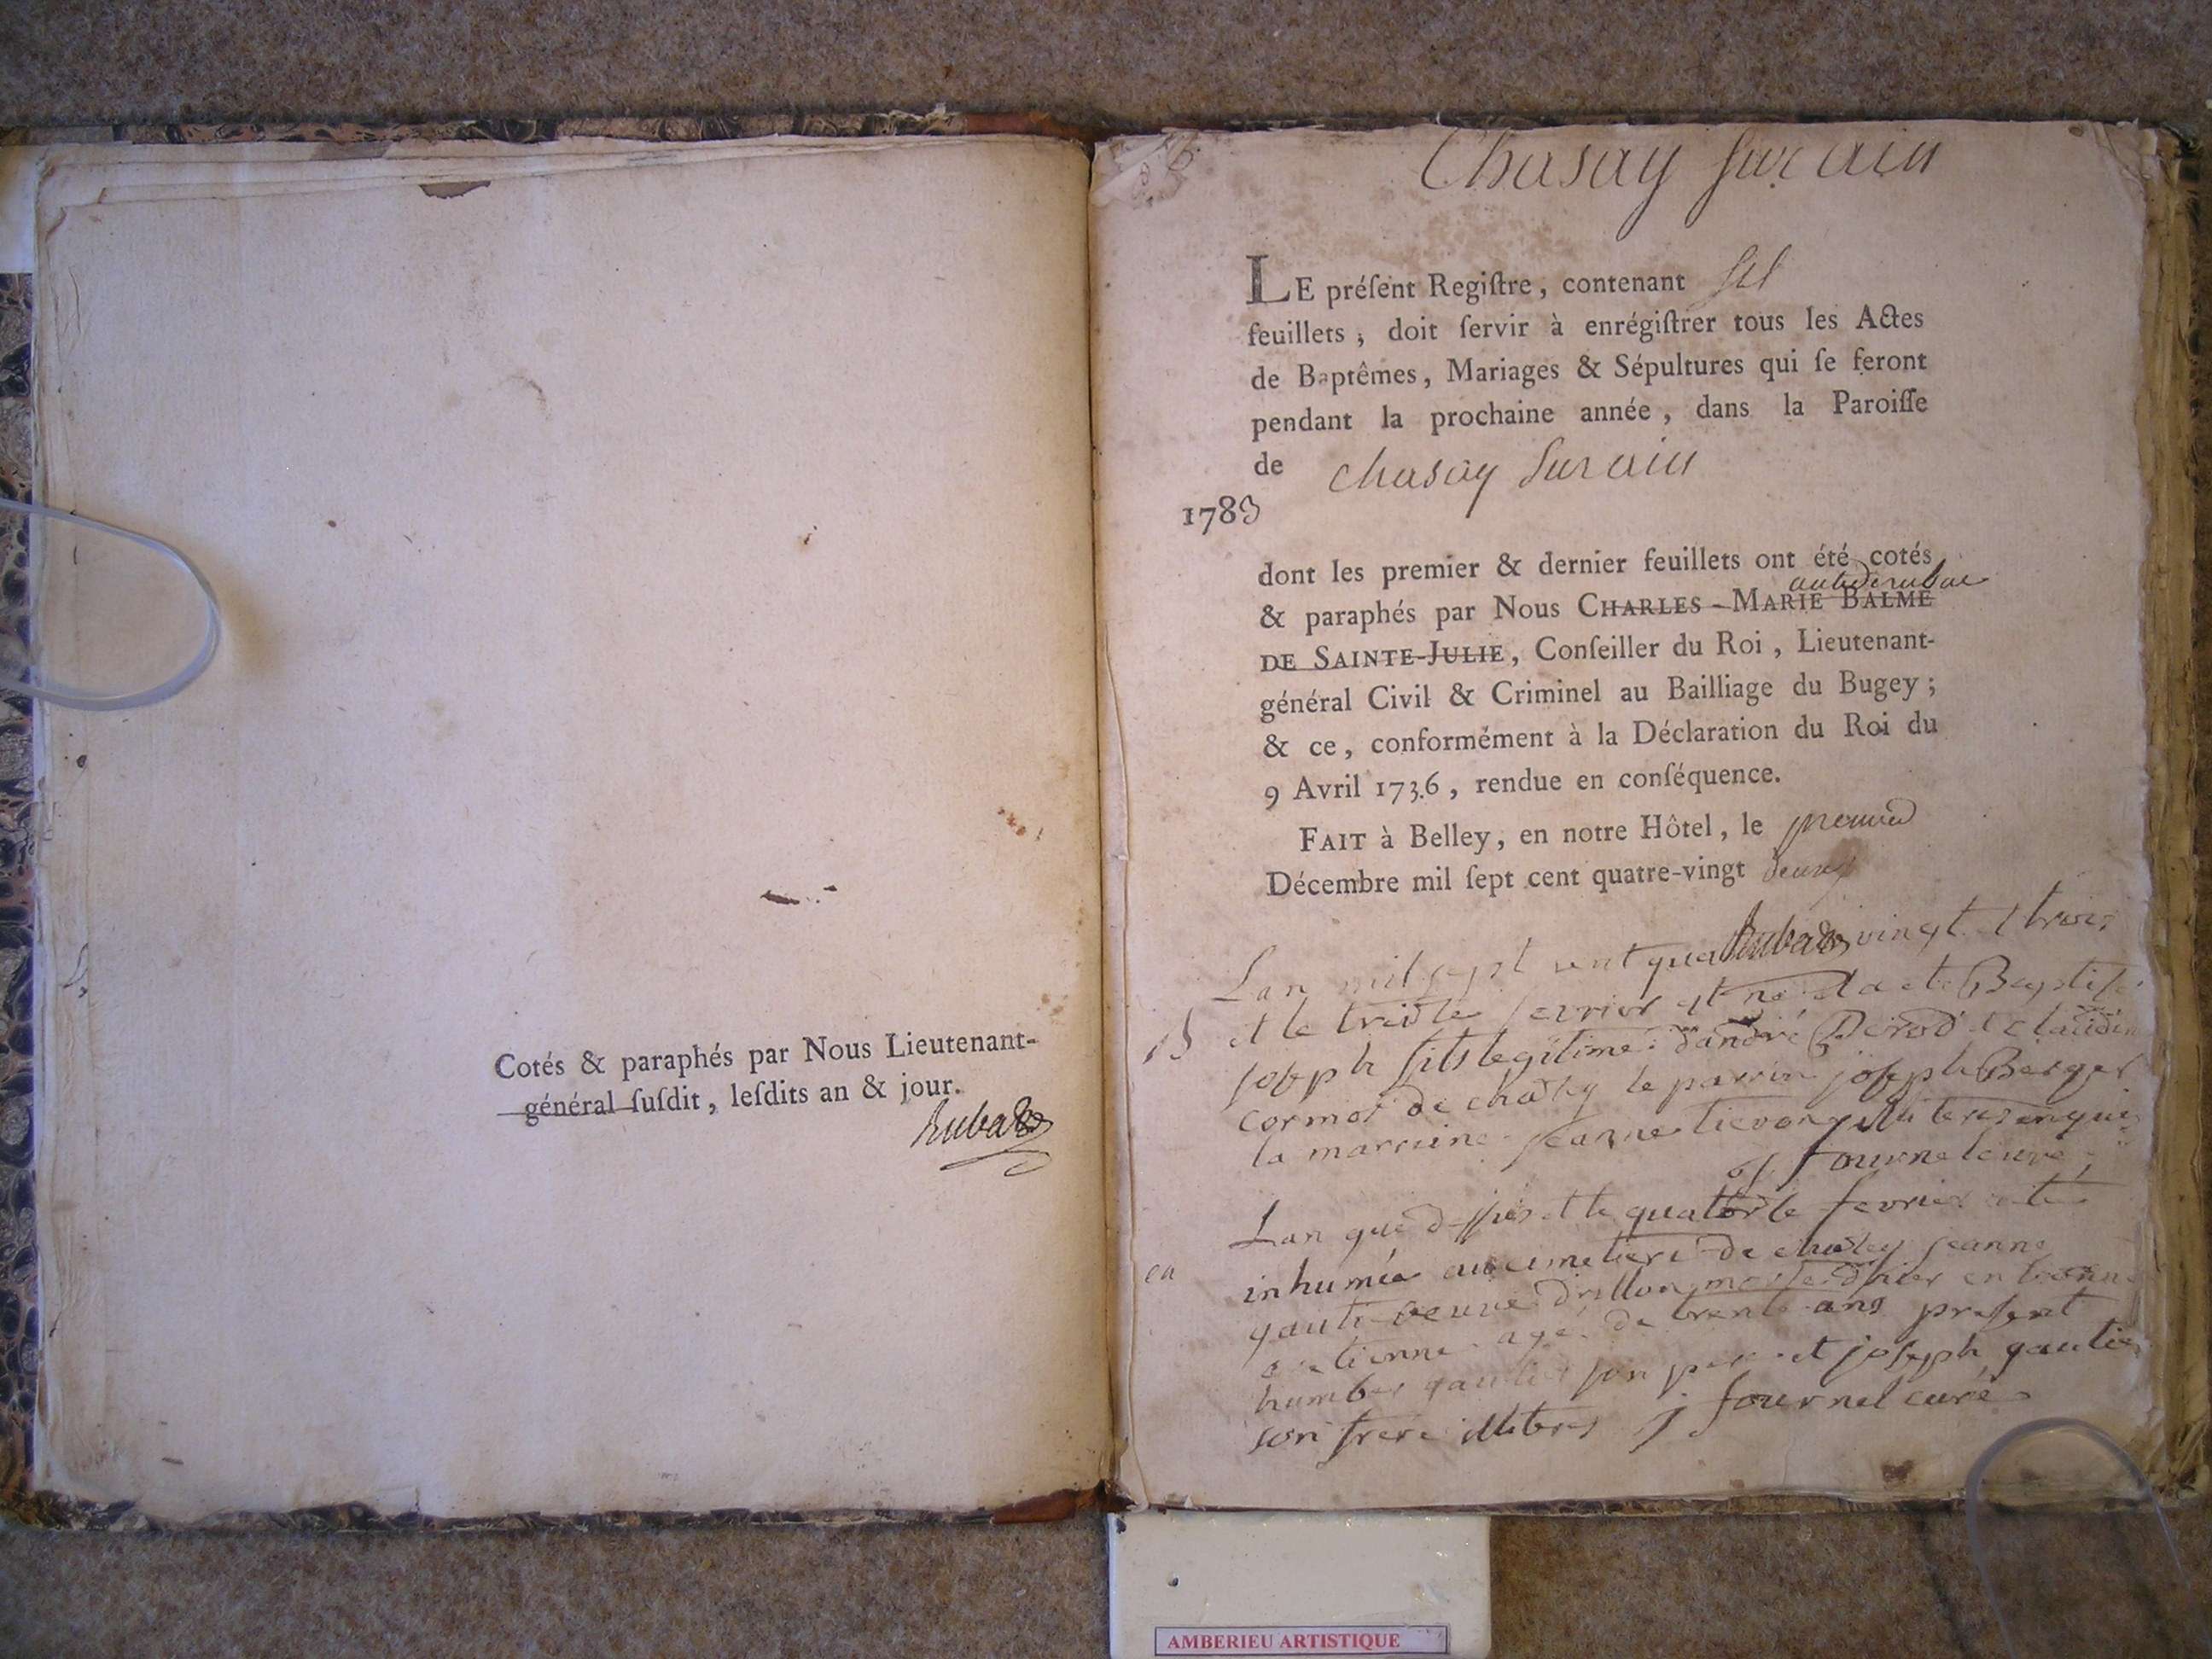 Cotés & paraphés par Nous Lieutenant-
général ſuſdit, leſdits an & jour.
Rubat
Chasay sur ain
LE préſent Regiſtre, contenant
feuillets, doit ſervir à enrégiſtrer tous les Actes
de Baptêmes, Mariages & Sépultures qui ſe feront
pendant la prochaine année, dans la Paroiſſe
de chasay Sur ain
1783
dont les premier & dernier feuillets ont été cotés
& paraphés par Nous CHARLES-MARIE BALME
DE SAINTE-JULIE, Conſeiller du Roi, Lieutenant-
général Civil & Criminel au Bailliage du Bugey;
& ce, conformément à la Déclaration du Roi du
9 Avril 1736, rendue en conſéquence.
FAIT à Belley, en notre Hôtel, le premier
Décembre mil ſept cent quatre-vingt deux
Rubat
Lan mil sept cent quatre vingt et trois
et le treize fevrier est né et a ete Baptisé
joseph fils legitime d'andré et claudine
de chazey le parrin joseph Berger
la marraine jeanne illiteres enquis
fournel curé
Lan que dessus et le quatorze fevrier a eté
inhumée au cimetiere de chazey jeanne
veuve morte d'hier
agé de trente ans present
humber gautier son pere et joseph gautier
son frere illiteres j fournel curé
AMBERIEU ARTISTIQUE